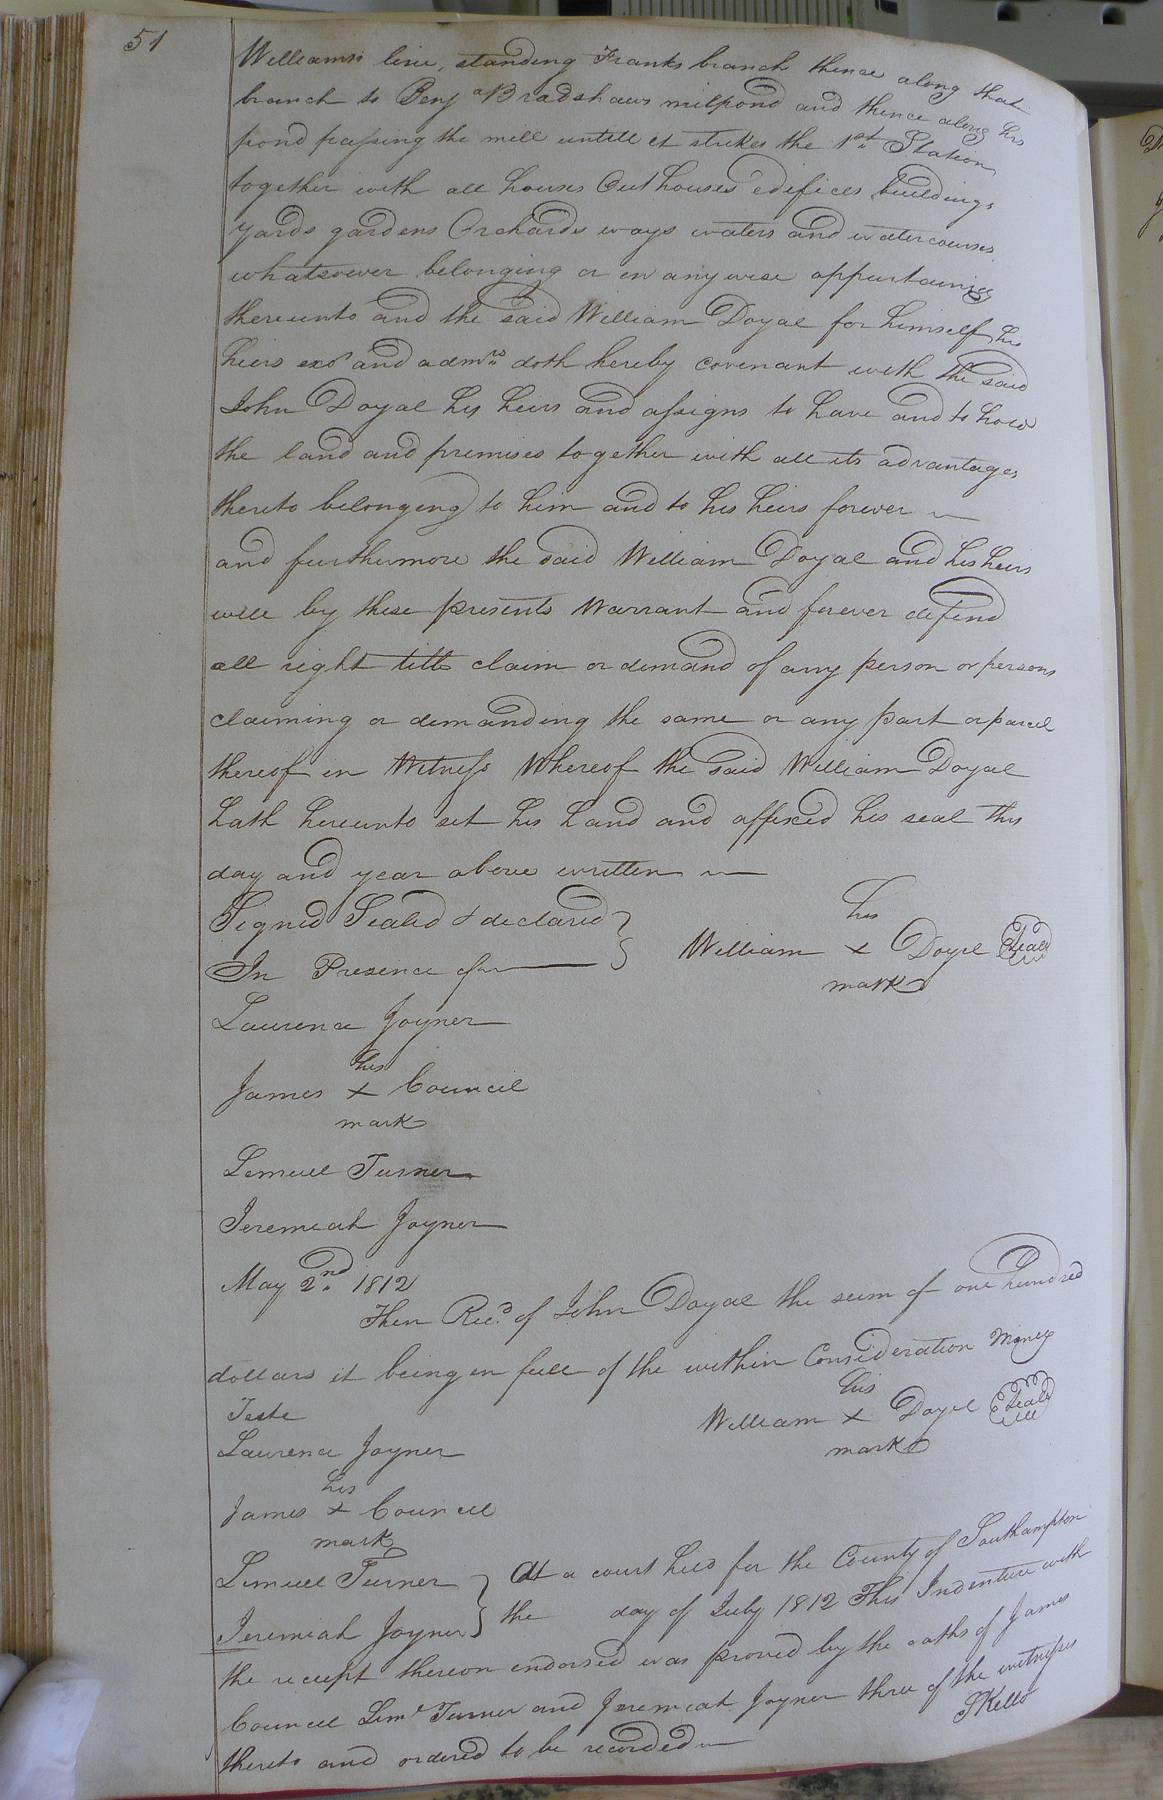 51
Williams's line, standing Franks branch thence along that
branch to Benja Bradshaws milpond and thence along his
pond passing the mill untill it strikes the 1st Station
together with all houses Outhouses edifices buildings
yards gardens Orchards ways waters and watercourses
whatsoever belonging or in anywise appurtaining
thereunto and the said William Doyal for himself his
heirs exrs and admrs doth hereby covenant with the said
John Doyal his heirs and assigns to have and to hold
the land and premises together with all its advantages
thereto belonging to him and to his heirs forever
and furthermore the said William Doyal and his heirs
will by these presents Warrant and forever defend
all right title claim or demand of any person or persons
claiming or demanding the same or any part or parcel
thereof in Witness Whereof the said William Doyal
hath hereunto set his hand and affixed his seal this
day and year above written
Signed Sealed & declared
In Presence of
his
William x Doyel Seal
mark
Laurence Joyner
his
James x Council
mark
Lemuel Turner
Jeremiah Joyner
May 2nd 1812
Then Recd of John Doyal the sum of one hundred
dollars it being in full of the within Consideration Money
Teste
his
William x Doyel Seal
mark
Laurence Joyner
his
James x Council
mark
Lemuel Turner
Jeremiah Joyner
At a court held for the County of Southampton
the day of July 1812 This Indenture with
the receipt thereon endorsed was proved by the oaths of James
Council Leml Turner and Jeremiah Joyner three of the witnesses
thereto and ordered to be recorded
SKello